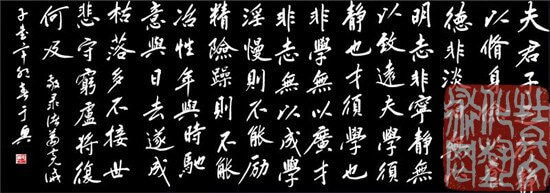 夫君子
以脩身
德非淡
明志非寧靜無
以致遠夫學須
靜也才須學也
非學無以廣才
非志無以成學
淫慢則不能励
精險躁則不能
冶性年與時馳
意與日去遂成
枯落多不接世
悲守窮廬將復
何及 敬录诸葛亮诫
子書